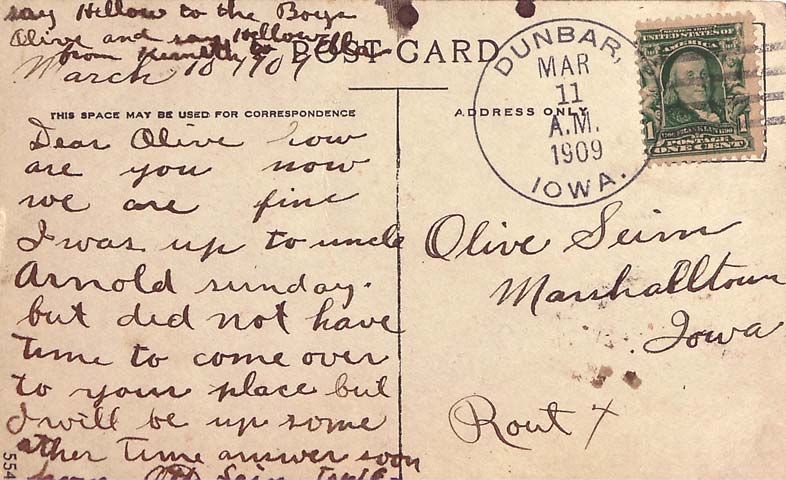 say Hellow to the Boys
Olive and say Hellow
from Kenneth to
POST CARD
March 10 1909
THIS SPACE MAY BE USED FOR CORRESPONDENCE
Dear Olive how
are you now
we are fine
I was up to uncle
Arnold sunday.
but did not have
time to come over
to your place but
I will be up some
other time answer soon
from Seim
554
ADDRESS ONLY
DUNBAR,
MAR
11
A.M.
1909
IOWA.
UNITED STATES OF
AMERICA
1 1
POSTAGE
ONE CENT
Olive Seim
Marshalltown
Iowa
Rout 4